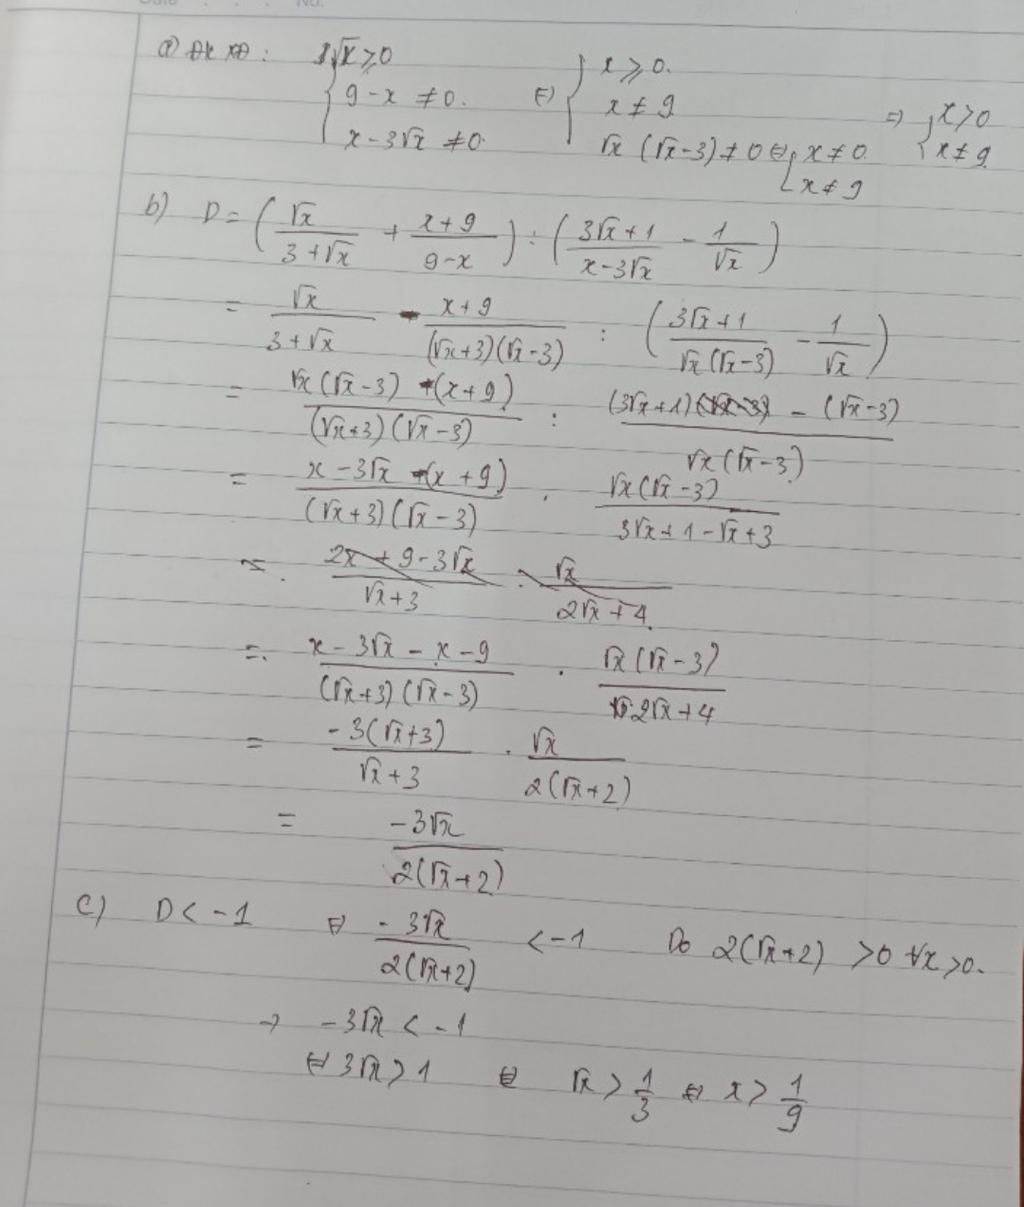 No.
a) ĐKXĐ: { √x ≥ 0 (=) { x ≥ 0.
9 - x ≠ 0. x ≠ 9 => { x > 0
x - 3√x ≠ 0 √x (√x - 3) ≠ 0 <=> { x ≠ 0 x ≠ 9
x ≠ 9
b) D = ( √x / (3 + √x) + (x + 9) / (9 - x) ) : ( (3√x + 1) / (x - 3√x) - 1 / √x )
= √x / (3 + √x) - (x + 9) / ((√x + 3)(√x - 3)) : ( (3√x + 1) / (√x (√x - 3)) - 1 / √x )
= (√x (√x - 3) - (x + 9)) / ((√x + 3)(√x - 3)) : ((3√x + 1) - (√x - 3)) / (√x (√x - 3))
= (x - 3√x - (x + 9)) / ((√x + 3)(√x - 3)) . (√x (√x - 3)) / (3√x + 1 - √x + 3)
= (2x + 9 - 3√x) / (√x + 3) . √x / (2√x + 4)
= (x - 3√x - x - 9) / ((√x + 3)(√x - 3)) . (√x (√x - 3)) / (2√x + 4)
= (-3(√x + 3)) / (√x + 3) . √x / (2(√x + 2))
= -3√x / (2(√x + 2))
c) D < -1 <=> -3√x / (2(√x + 2)) < -1 Do 2(√x + 2) > 0 ∀x > 0.
-> -3√x < -1
<=> 3√x > 1 <=> √x > 1/3 <=> x > 1/9